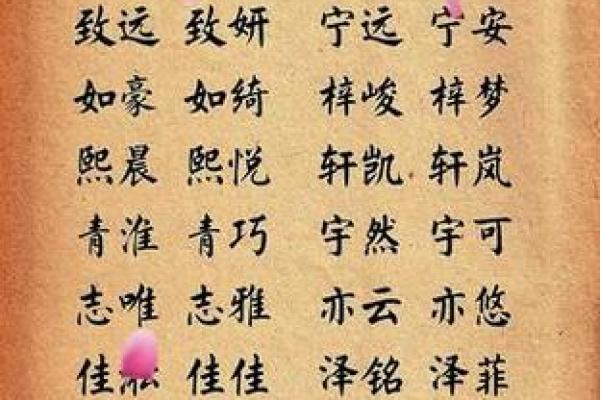 致远 致妍 宁远 宁安
如豪 如绮 梓峻 梓梦
熙晨 熙悦 轩凯 轩岚
青淮 青巧 宇然 宇可
志唯 志雅 亦云 亦悠
佳 佳佳 泽铭 泽菲